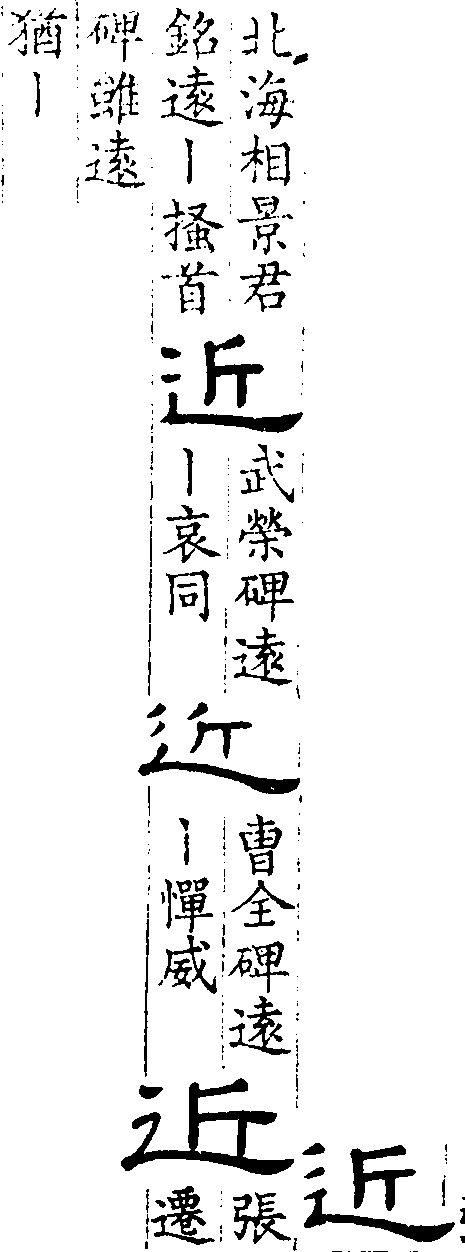 近
北海相景君
銘遠丨搔首
近
武榮碑遠
丨哀同
近
曹全碑遠
丨憚威
近
張
遷
碑雖遠
猶丨